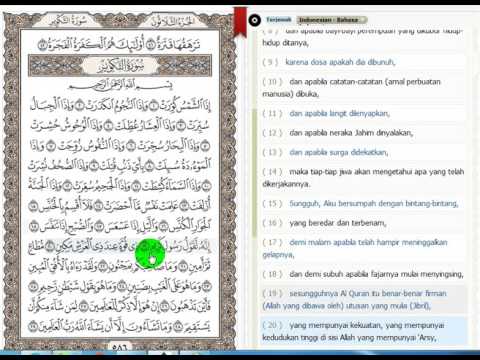 سُورَةُ التَّكْوِيرِ الجُزْءُ الثَّلَاثُونَ
تَرْهَقُهَا قَتَرَةٌ ۝ أُولَٰئِكَ هُمُ الْكَفَرَةُ الْفَجَرَةُ ۝
سُورَةُ التَّكْوِيرِ
بِسْمِ اللَّهِ الرَّحْمَٰنِ الرَّحِيمِ
إِذَا الشَّمْسُ كُوِّرَتْ ۝ وَإِذَا النُّجُومُ انكَدَرَتْ ۝ وَإِذَا الْجِبَالُ
سُيِّرَتْ ۝ وَإِذَا الْعِشَارُ عُطِّلَتْ ۝ وَإِذَا الْوُحُوشُ حُشِرَتْ
۝ وَإِذَا الْبِحَارُ سُجِّرَتْ ۝ وَإِذَا النُّفُوسُ زُوِّجَتْ ۝ وَإِذَا
الْمَوْءُودَةُ سُئِلَتْ ۝ بِأَيِّ ذَنبٍ قُتِلَتْ ۝ وَإِذَا الصُّحُفُ نُشِرَتْ
۝ وَإِذَا السَّمَاءُ كُشِطَتْ ۝ وَإِذَا الْجَحِيمُ سُعِّرَتْ ۝ وَإِذَا الْجَنَّةُ
أُزْلِفَتْ ۝ عَلِمَتْ نَفْسٌ مَّا أَحْضَرَتْ ۝ فَلَا أُقْسِمُ بِالْخُنَّسِ
۝ الْجَوَارِ الْكُنَّسِ ۝ وَاللَّيْلِ إِذَا عَسْعَسَ ۝ وَالصُّبْحِ إِذَا تَنَفَّسَ
۝ إِنَّهُ لَقَوْلُ رَسُولٍ كَرِيمٍ ۝ ذِي قُوَّةٍ عِندَ ذِي الْعَرْشِ مَكِينٍ ۝ مُّطَاعٍ
ثَمَّ أَمِينٍ ۝ وَمَا صَاحِبُكُم بِمَجْنُونٍ ۝ وَلَقَدْ رَآهُ بِالْأُفُقِ الْمُبِينِ
۝ وَمَا هُوَ عَلَى الْغَيْبِ بِضَنِينٍ ۝ وَمَا هُوَ بِقَوْلِ شَيْطَانٍ رَّجِيمٍ ۝
فَأَيْنَ تَذْهَبُونَ ۝ إِنْ هُوَ إِلَّا ذِكْرٌ لِّلْعَالَمِينَ ۝ لِمَن شَاءَ مِنكُمْ أَن
يَسْتَقِيمَ ۝ وَمَا تَشَاءُونَ إِلَّا أَن يَشَاءَ اللَّهُ رَبُّ الْعَالَمِينَ ۝
٥٨٦
Terjemah Indonesian - Bahasa
dan apabila bayi-bayi perempuan yang dikubur hidup-
hidup ditanya,
( 9 ) karena dosa apakah dia dibunuh,
( 10 ) dan apabila catatan-catatan (amal perbuatan
manusia) dibuka,
( 11 ) dan apabila langit dilenyapkan,
( 12 ) dan apabila neraka Jahim dinyalakan,
( 13 ) dan apabila surga didekatkan,
( 14 ) maka tiap-tiap jiwa akan mengetahui apa yang telah
dikerjakannya.
( 15 ) Sungguh, Aku bersumpah dengan bintang-bintang,
( 16 ) yang beredar dan terbenam,
( 17 ) demi malam apabila telah hampir meninggalkan
gelapnya,
( 18 ) dan demi subuh apabila fajarnya mulai menyingsing,
( 19 ) sesungguhnya Al Quran itu benar-benar firman
(Allah yang dibawa oleh) utusan yang mulia (Jibril),
( 20 ) yang mempunyai kekuatan, yang mempunyai
kedudukan tinggi di sisi Allah yang mempunyai 'Arsy,